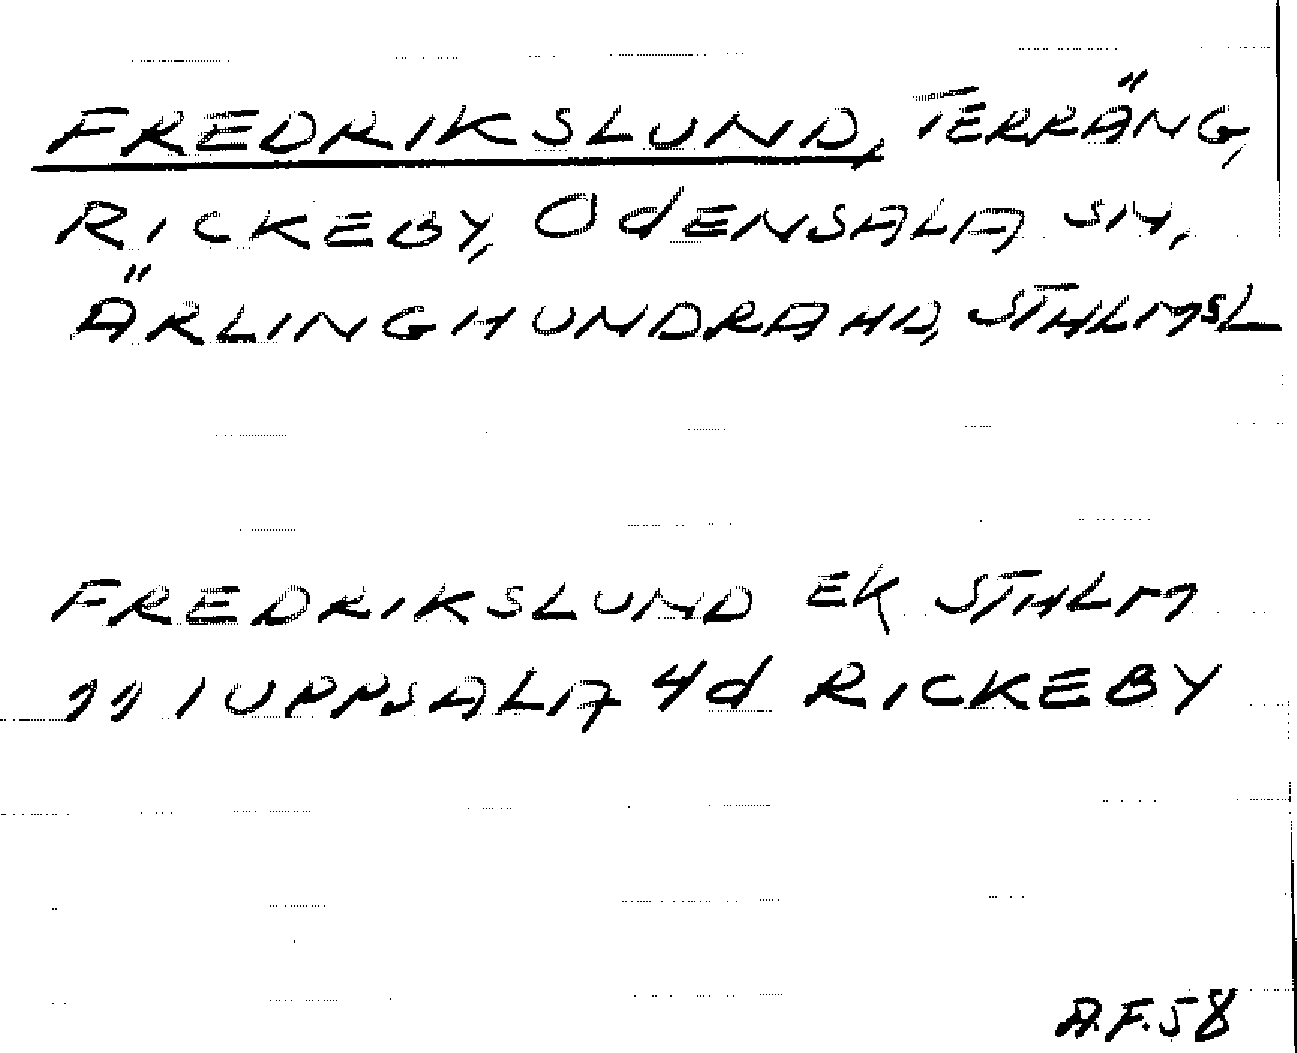 FREDRIKSLUND, TERRÄNG,
RICKEBY, ODENSALA SN,
ÄRLINGHUNDRA HD, STHLMSL
FREDRIKSLUND EK STHLM
11 I UPPSALA 4d RICKEBY
A.F. 58